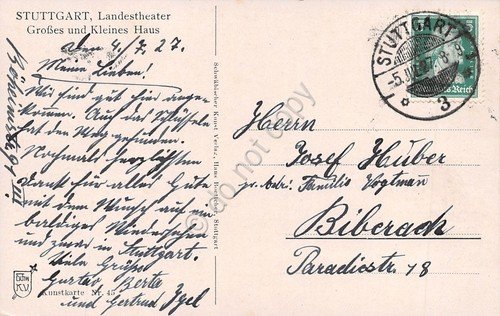 STUTTGART, Landestheater
Großes und Kleines Haus
den 4. 7. 27.
Meine Lieben!
Wir sind gut hier ange-
kommen. Auch das Schlüssele
hat den Weg gefunden.
Nochmals herzlichsten
Dank für alles Gute
mit dem Wunsch auf ein
baldiges Wiedersehen
und zwar in Stuttgart.
Viele Grüße
Gustav, Berta
und Gertrud Igel
91 III
Kunstkarte Nr. 45
Schwäbischer Kunst Verlag, Hans Stuttgart
STUTTGART
-5.VII.27. 8-9
3
5
Deutsches Reich
Herrn
Josef Huber
pr. Adr. Familie Vogtmann
Biberach
Paradiestr. 18
do not copy